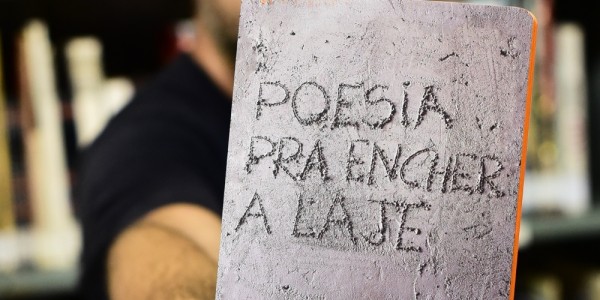 POESIA
PRA ENCHER
A LAJE